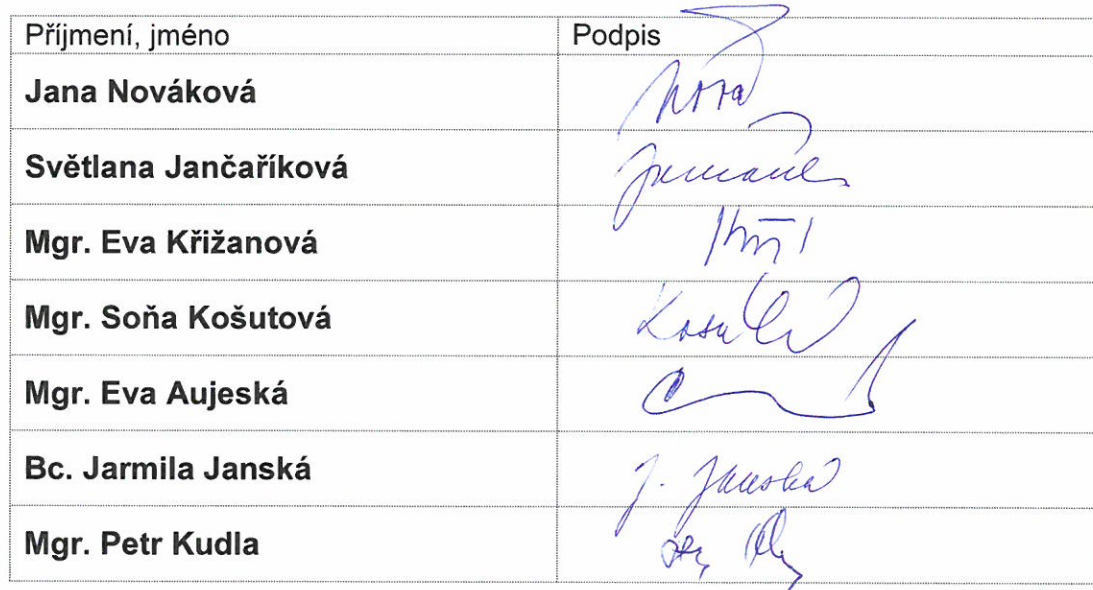 Příjmení, jméno Podpis
Jana Nováková
Světlana Jančaříková
Mgr. Eva Křižanová
Mgr. Soňa Košutová
Mgr. Eva Aujeská
Bc. Jarmila Janská J. Janská
Mgr. Petr Kudla